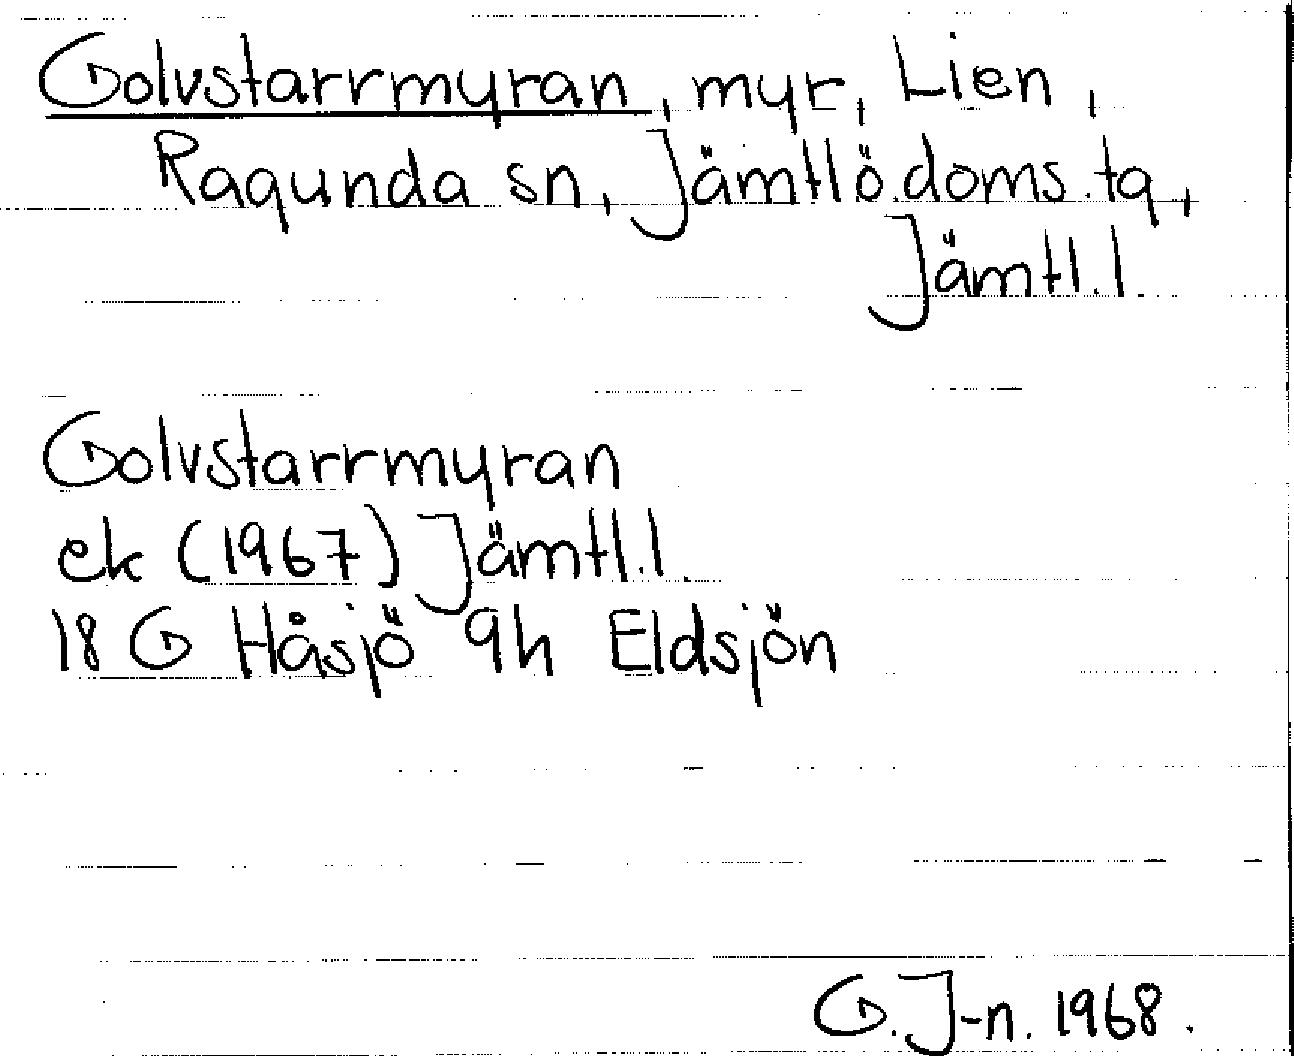 Golvstarrmyran, myr, Lien,
Ragunda sn, Jämtlö.doms.tg,
Jämtl.l.
Golvstarrmyran
ek (1967) Jämtl.l.
18 G Håsjö 9h Eldsjön
G. J-n. 1968.